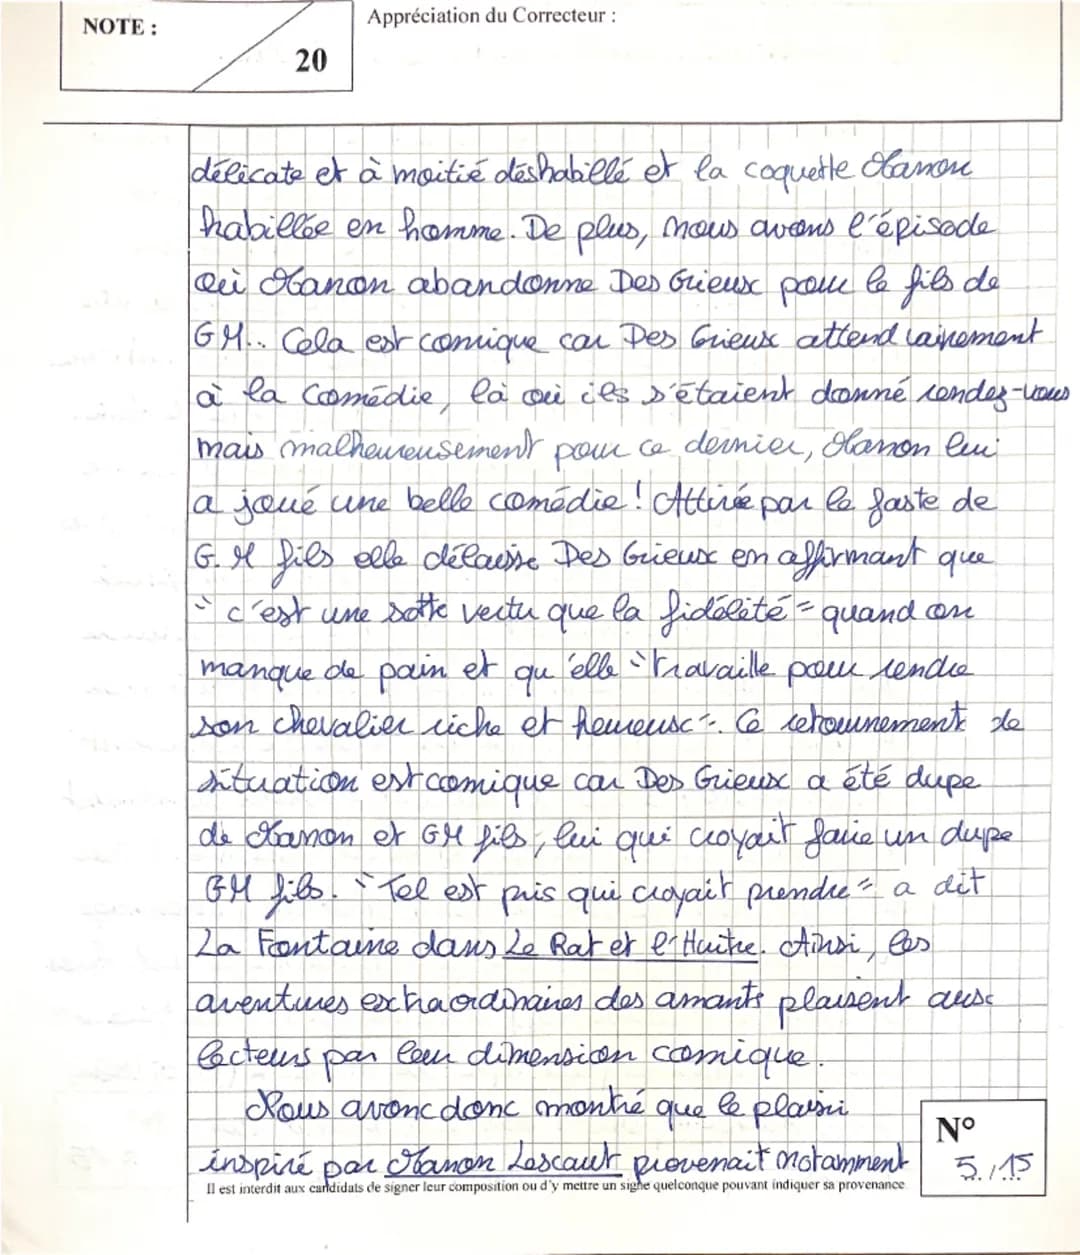 NOTE :
20
Appréciation du Correcteur :
délicate et à moitié déshabillé et la coquette Manon
habillée en homme. De plus, nous avons l'épisode
où Manon abandonne Des Grieux pour le fils de
G M.. Cela est comique car Des Grieux attend vainement
à la Comédie, là où ils s'étaient donné rendez-vous
mais malheureusement pour ce dernier, Manon lui
a joué une belle comédie ! Attiré par le faste de
G. M fils elle délaisse Des Grieux en affirmant que
" c'est une sotte vertu que la fidélité " quand on
manque de pain et qu'elle " travaille pour rendre
son chevalier riche et heureux ". Ce retournement de
situation est comique car Des Grieux a été dupe
de Manon et GM fils, lui qui croyait faire un dupe
GM fils. " Tel est pris qui croyait prendre " a dit
La Fontaine dans Le Rat et l'Huitre. Ainsi, les
aventures extraordinaires des amants plaisent aux
lecteurs par leur dimension comique.
Nous avons donc montré que le plaisir
inspiré par Manon Lescaut provenait notamment
Il est interdit aux candidats de signer leur composition ou d'y mettre un signe quelconque pouvant indiquer sa provenance
N°
5./15